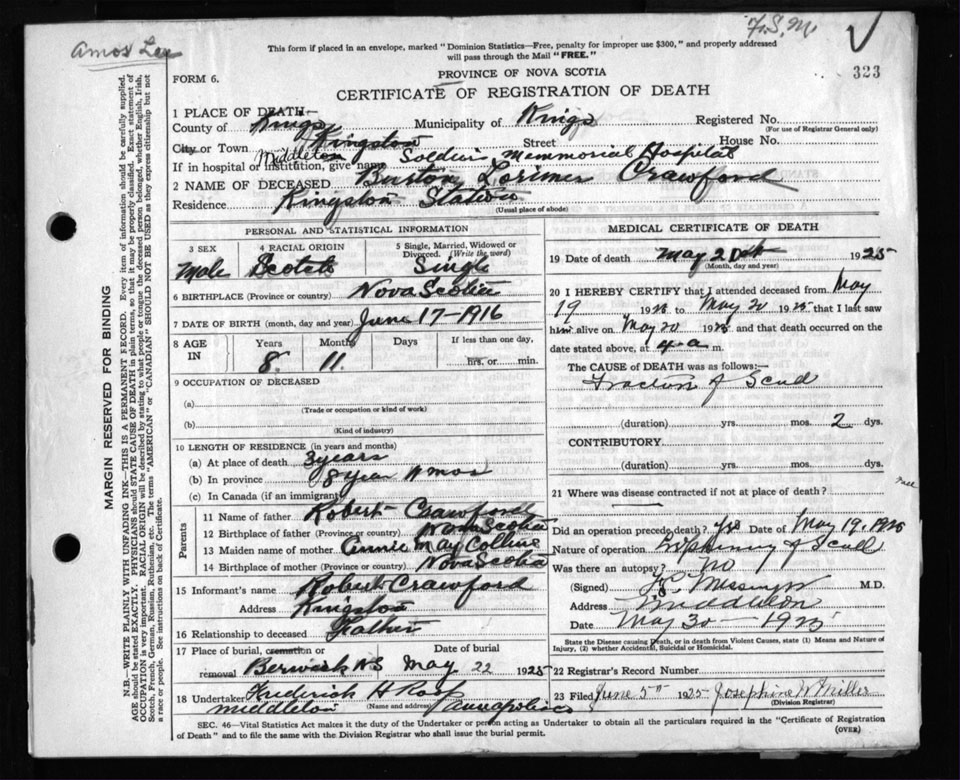 Amos Lee
F.S.M.
This form if placed in an envelope, marked "Dominion Statistics—Free, penalty for improper use $300," and properly addressed
will pass through the Mail "FREE."
323
FORM 6.
PROVINCE OF NOVA SCOTIA
CERTIFICATE OF REGISTRATION OF DEATH
1 PLACE OF DEATH—
County of Kings Municipality of Kings Registered No.
(For use of Registrar General only)
City or Town Kingston Street House No.
If in hospital or institution, give name Middleton Soldiers Memmorial Hospital
2 NAME OF DECEASED Burton Lorimer Crawford
Residence Kingston Station
(Usual place of abode)
PERSONAL AND STATISTICAL INFORMATION
3 SEX 4 RACIAL ORIGIN 5 Single, Married, Widowed or
Divorced. (Write the word)
Male Scotch Single
6 BIRTHPLACE (Province or country) Nova Scotia
7 DATE OF BIRTH (month, day and year) June 17-1916
8 AGE IN Years Months Days If less than one day,
8 11 hrs. or min.
9 OCCUPATION OF DECEASED
(a)
(Trade or occupation or kind of work)
(b)
(Kind of industry)
10 LENGTH OF RESIDENCE (in years and months)
(a) At place of death 3 years
(b) In province 8 year 11 mos
(c) In Canada (if an immigrant)
Parents
11 Name of father Robert Crawford
12 Birthplace of father (Province or country) Nova Scotia
13 Maiden name of mother Annie May Collins
14 Birthplace of mother (Province or Country) Nova Scotia
15 Informant's name Robert Crawford
Address Kingston
16 Relationship to deceased Father
17 Place of burial, cremation or Date of burial
removal Berwick NS May 22 1925
18 Undertaker Frederick H Roop
Middleton (Name and address) Annapolis Co
MEDICAL CERTIFICATE OF DEATH
19 Date of death May 20th 1925
(Month, day and year)
20 I HEREBY CERTIFY that I attended deceased from May
19 1925 to May 20 1925 that I last saw
him alive on May 20 1925 and that death occurred on the
date stated above, at 4-a m.
The CAUSE of DEATH was as follows:—
Fracture of Scull
(duration) yrs. mos. 2 dys.
CONTRIBUTORY
(duration) yrs. mos. dys.
21 Where was disease contracted if not at place of death?
Did an operation precede death? Yes Date of May 19, 1925
Nature of operation Trephining of Scull
Was there an autopsy? No
(Signed) Messinger M.D.
Address Middleton
Date May 30-1925
State the Disease causing Death, or in death from Violent Causes, state (1) Means and Nature of
Injury, (2) whether Accidental, Suicidal or Homicidal.
22 Registrar's Record Number
23 Filed June 5th 1925 Josephine W Miller
(Division Registrar)
SEC. 46—Vital Statistics Act makes it the duty of the Undertaker or person acting as Undertaker to obtain all the particulars required in the "Certificate of Registration
of Death" and to file the same with the Division Registrar who shall issue the burial permit.
(OVER)
MARGIN RESERVED FOR BINDING
N.B.—WRITE PLAINLY WITH UNFADING INK—THIS IS A PERMANENT RECORD. Every item of information should be carefully supplied.
AGE should be stated EXACTLY. PHYSICIANS should STATE CAUSE OF DEATH in plain terms, so that it may be properly classified. Exact statement of
OCCUPATION is very important. RACIAL ORIGIN will be described by stating to what people or tongue the deceased person belonged, whether English, Irish,
Scotch, French, German, Russian, Ruthenian, etc. The terms "AMERICAN" or "CANADIAN" SHOULD NOT BE USED as they express citizenship but not
a race or people. See instructions on back of Certificate.